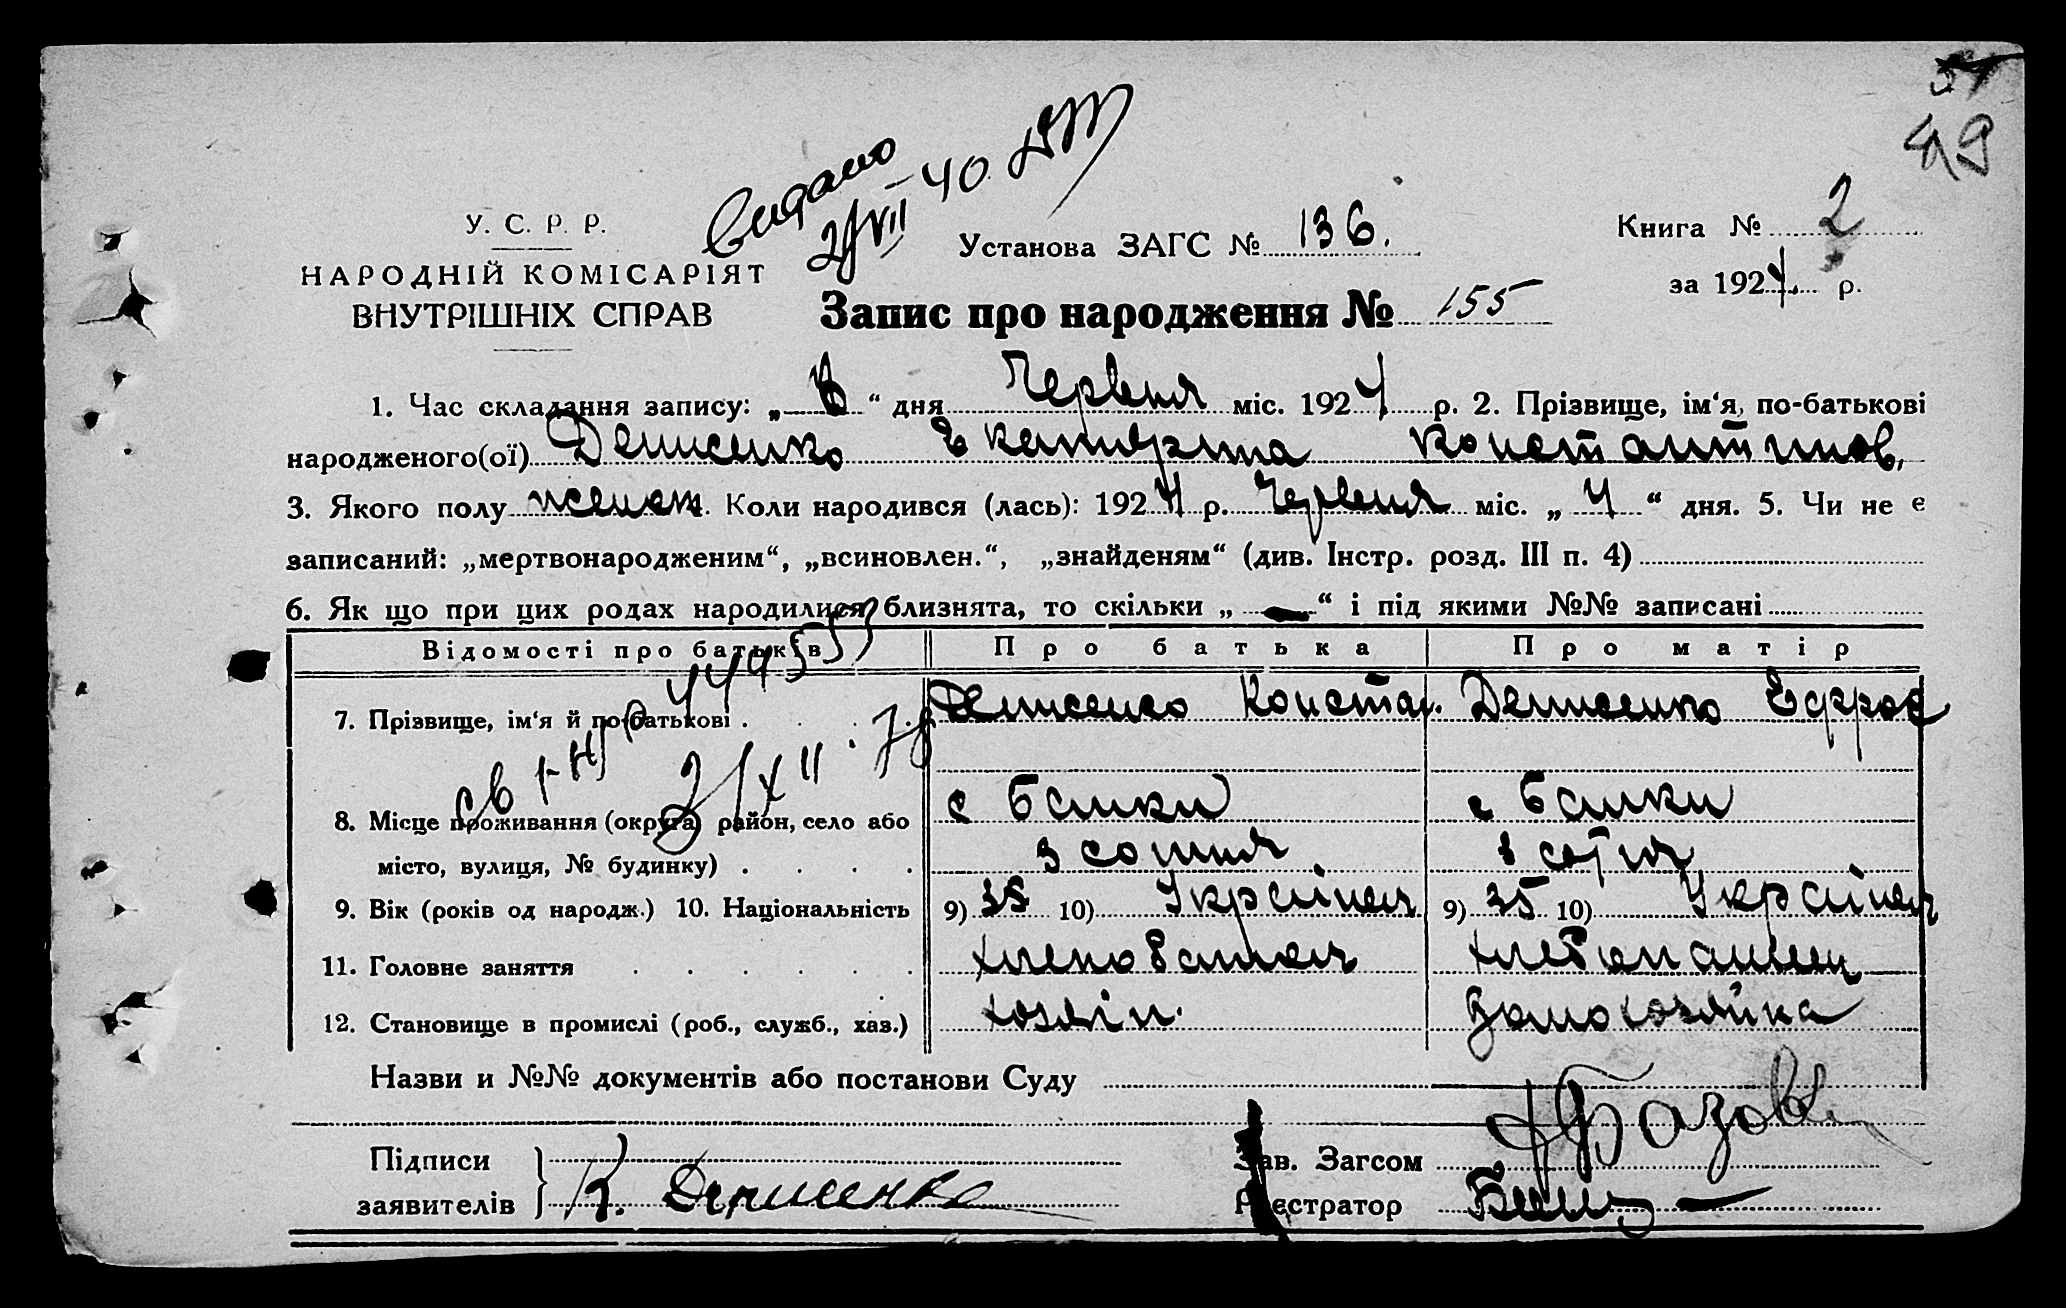 49
Видано
У. С. Р. Р.
НАРОДНІЙ КОМІСАРІЯТ
ВНУТРІШНІХ СПРАВ
Установа ЗАГС № 136.
Книга № 2
за 1924 р.
Запис про народження № 155
1. Час складання запису: „ “ дня Червня міс. 1924 р. 2. Прізвище, ім‘я, по-батькові
народженого(ої) Денисенко Екатерина Константинов.
3. Якого полу женск. Коли народився (лась): 1924 р. Червня міс. „4“ дня. 5. Чи не є
записаний: „мертвонародженим“, „всиновлен.“, „знайденям“ (див. Інстр. розд. III п. 4)
6. Як що при цих родах народилися близнята, то скільки „—“ і під якими №№ записані
Відомості про батьків Про батька Про матір
7. Прізвище, ім‘я й по-батькові Денисенко Констан. Денисенко Ефрос
8. Місце проживання (округа, район, село або с Балки с Балки
місто, вулиця, № будинку) 3 сотня 3 сотня
9. Вік (років од народж.) 10. Національність 9) 38 10) Українец 9) 35 10) Українец
11. Головне заняття хлебопашец
12. Становище в промислі (роб., служб., хаз.) хозяін. домохозяйка
Назви и №№ документів або постанови Суду
Підписи
заявителів К. Денисенко
Зав. Загсом
Реєстратор